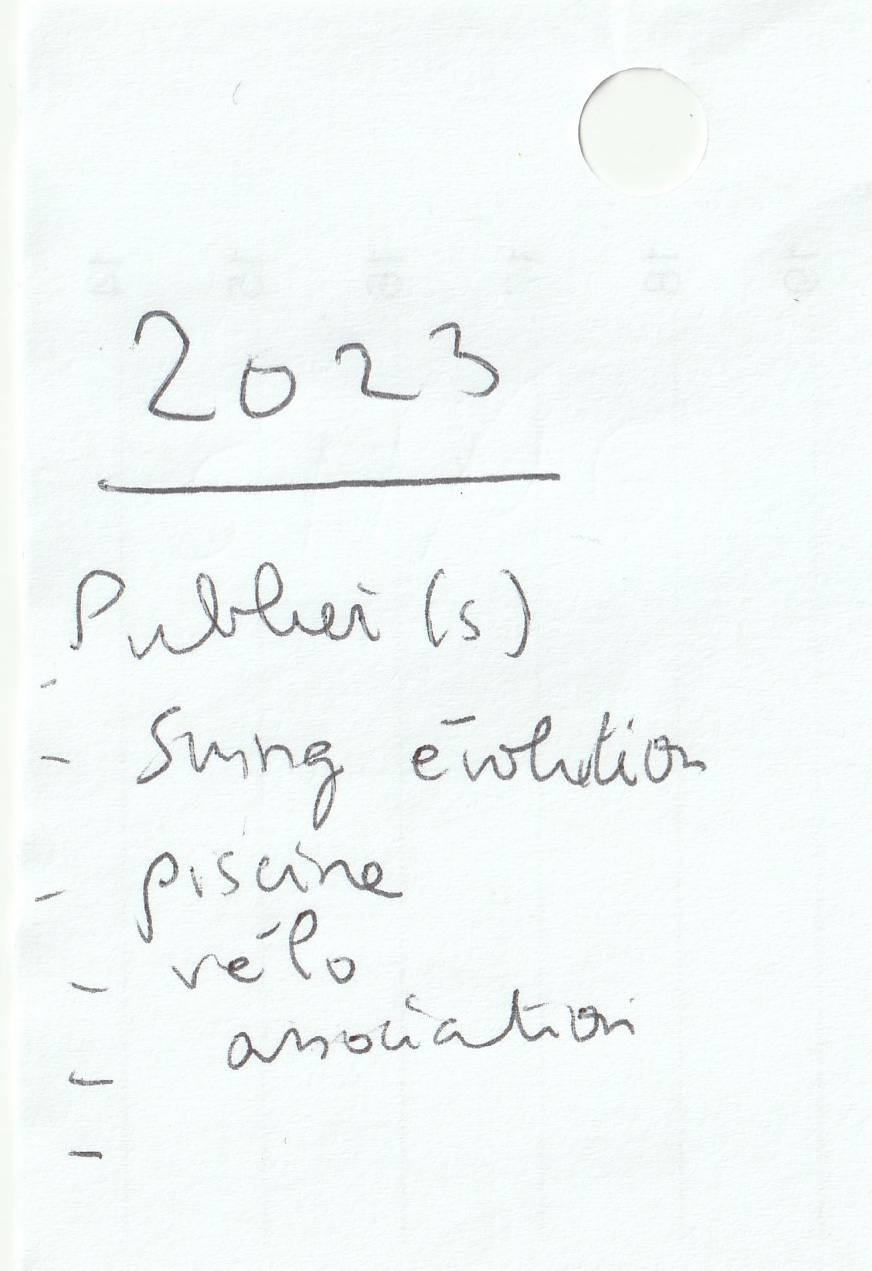 2023
Publier (s)
-
- Swing évolution
- piscine
- vélo
association
-
-